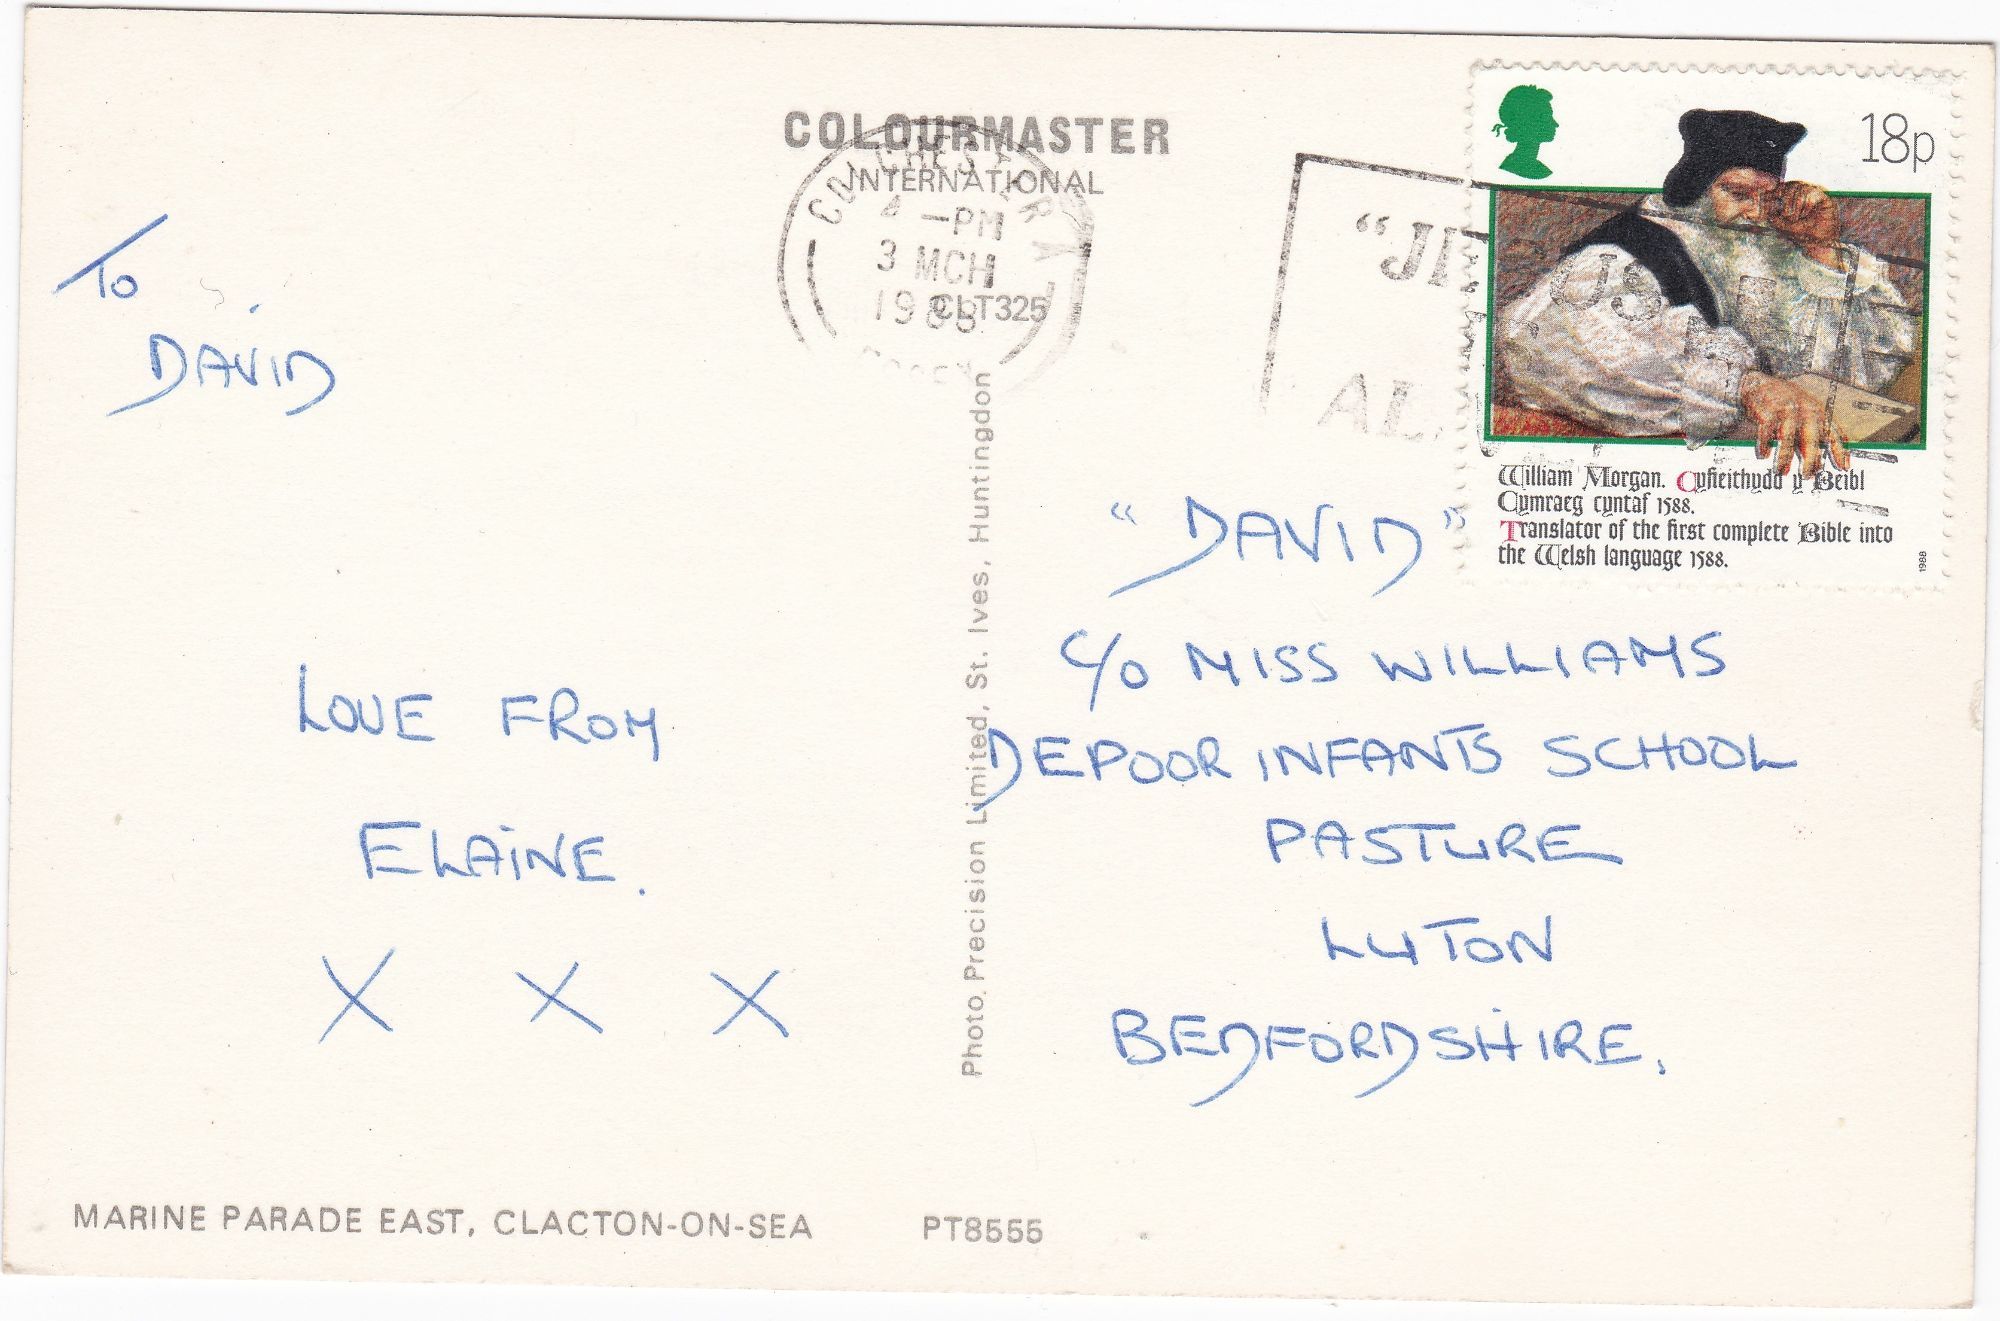 COLOURMASTER
INTERNATIONAL
COLCHESTER
4 - PM
3 MCH
1988
CLT325
18p
"JESUS
William Morgan. Cyfieithydd y Beibl
Cymraeg cyntaf 1588.
Translator of the first complete Bible into
the Welsh language 1588.
1988
To
DAVID
LOVE FROM
ELAINE.
X X X
Photo Precision Limited, St. Ives, Huntingdon
"DAVID"
C/O MISS WILLIAMS
DEPOOR INFANTS SCHOOL
PASTURE
LUTON
BEDFORDSHIRE.
MARINE PARADE EAST, CLACTON-ON-SEA PT8555